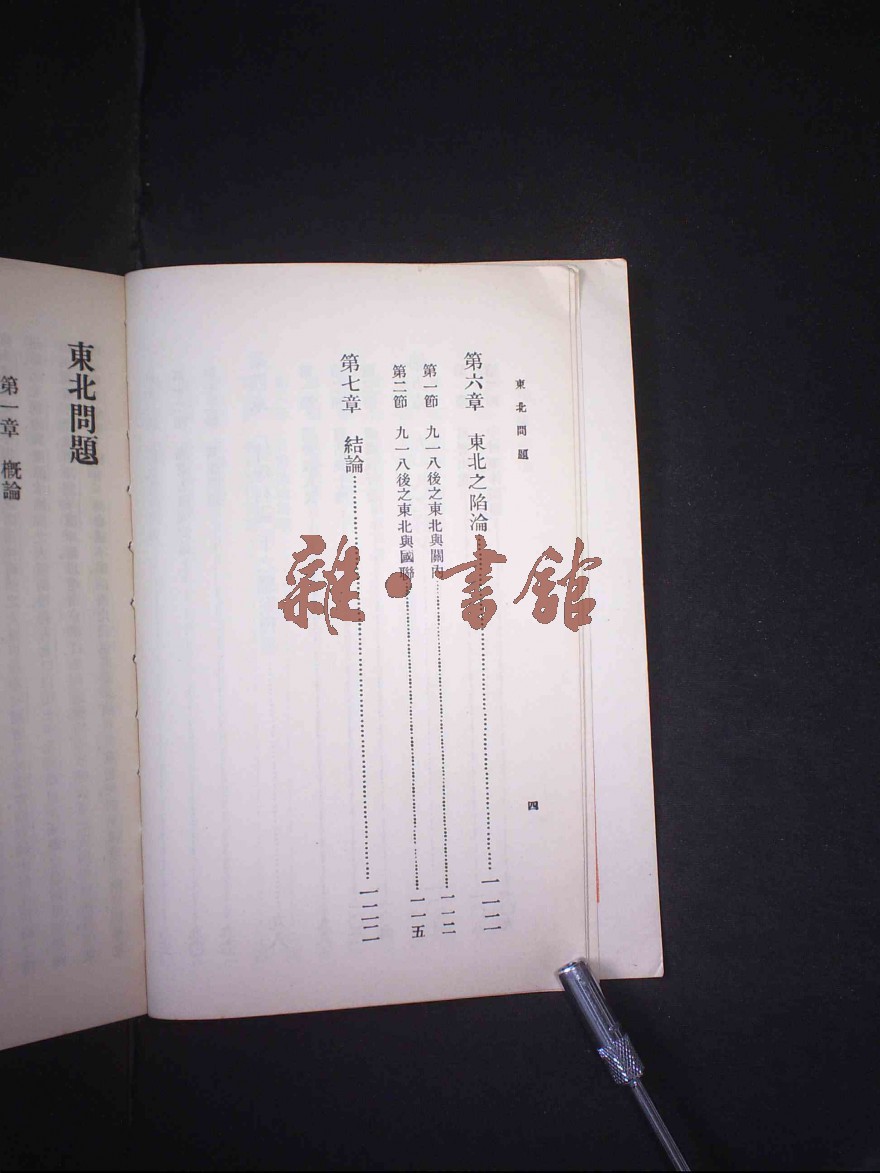 東北問題
四
第六章 東北之陷淪……一一二
第一節 九一八後之東北與關內……一一二
第二節 九一八後之東北與國聯……一一五
第七章 結論……一二二
東北問題
第一章 概論
雜·書館